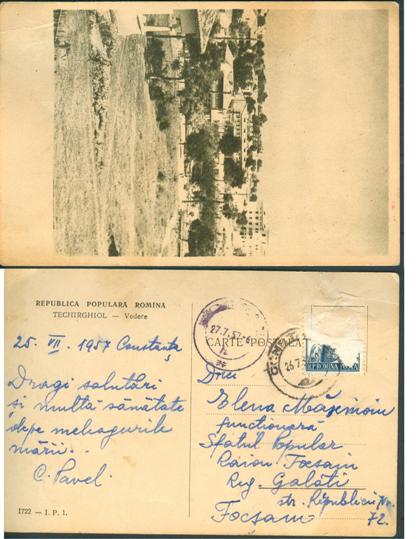 REPUBLICA POPULARA ROMINA
TECHIRGHIOL — Vedere
25. VII. 1957 Constanta
Dragi salutări
și multă sănătate
depe meleagurile
mării..
C. Pavel.
1722 — I. P. 1.
27.7.57
CARTE POSTALĂ
26.7
R.P.ROMINA
Dnei
Elena
funcționară
Sfatul Popular
Raion Focsani
Reg. Galăti
str. Republicii Nr.
72.
Focsani